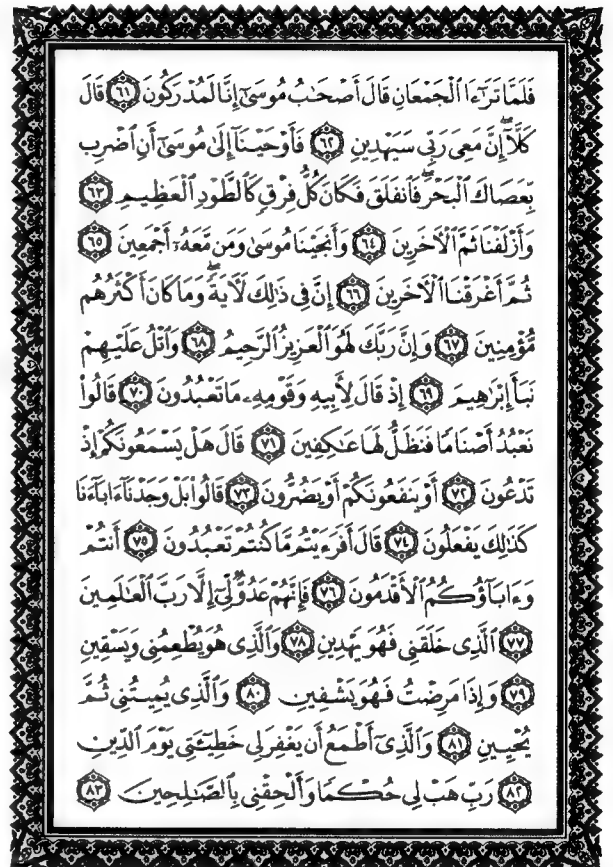 فَلَمَّا تَرَٰٓءَا ٱلْجَمْعَانِ قَالَ أَصْحَٰبُ مُوسَىٰٓ إِنَّا لَمُدْرَكُونَ ٦١ قَالَ
كَلَّآ ۖ إِنَّ مَعِىَ رَبِّى سَيَهْدِينِ ٦٢ فَأَوْحَيْنَآ إِلَىٰ مُوسَىٰٓ أَنِ ٱضْرِب
بِّعَصَاكَ ٱلْبَحْرَ ۖ فَٱنفَلَقَ فَكَانَ كُلُّ فِرْقٍ كَٱلطَّوْدِ ٱلْعَظِيمِ ٦٣
وَأَزْلَفْنَا ثَمَّ ٱلْأَخَرِينَ ٦٤ وَأَنجَيْنَا مُوسَىٰ وَمَن مَّعَهُۥٓ أَجْمَعِينَ ٦٥
ثُمَّ أَغْرَقْنَا ٱلْأَخَرِينَ ٦٦ إِنَّ فِى ذَٰلِكَ لَأٓيَةً ۖ وَمَا كَانَ أَكْثَرُهُم
مُّؤْمِنِينَ ٦٧ وَإِنَّ رَبَّكَ لَهُوَ ٱلْعَزِيزُ ٱلرَّحِيمُ ٦٨ وَٱتْلُ عَلَيْهِمْ
نَبَأَ إِبْرَٰهِيمَ ٦٩ إِذْ قَالَ لِأَبِيهِ وَقَوْمِهِۦ مَا تَعْبُدُونَ ٧٠ قَالُوا۟
نَعْبُدُ أَصْنَامًا فَنَظَلُّ لَهَا عَٰكِفِينَ ٧١ قَالَ هَلْ يَسْمَعُونَكُمْ إِذْ
تَدْعُونَ ٧٢ أَوْ يَنفَعُونَكُمْ أَوْ يَضُرُّونَ ٧٣ قَالُوا۟ بَلْ وَجَدْنَآ ءَابَآءَنَا
كَذَٰلِكَ يَفْعَلُونَ ٧٤ قَالَ أَفَرَءَيْتُم مَّا كُنتُمْ تَعْبُدُونَ ٧٥ أَنتُمْ
وَءَابَآؤُكُمُ ٱلْأَقْدَمُونَ ٧٦ فَإِنَّهُمْ عَدُوٌّ لِّىٓ إِلَّا رَبَّ ٱلْعَٰلَمِينَ
٧٧ ٱلَّذِى خَلَقَنِى فَهُوَ يَهْدِينِ ٧٨ وَٱلَّذِى هُوَ يُطْعِمُنِى وَيَسْقِينِ
٧٩ وَإِذَا مَرِضْتُ فَهُوَ يَشْفِينِ ٨٠ وَٱلَّذِى يُمِيتُنِى ثُمَّ
يُحْيِينِ ٨١ وَٱلَّذِىٓ أَطْمَعُ أَن يَغْفِرَ لِى خَطِيٓـَٔتِى يَوْمَ ٱلدِّينِ
٨٢ رَبِّ هَبْ لِى حُكْمًا وَأَلْحِقْنِى بِٱلصَّٰلِحِينَ ٨٣